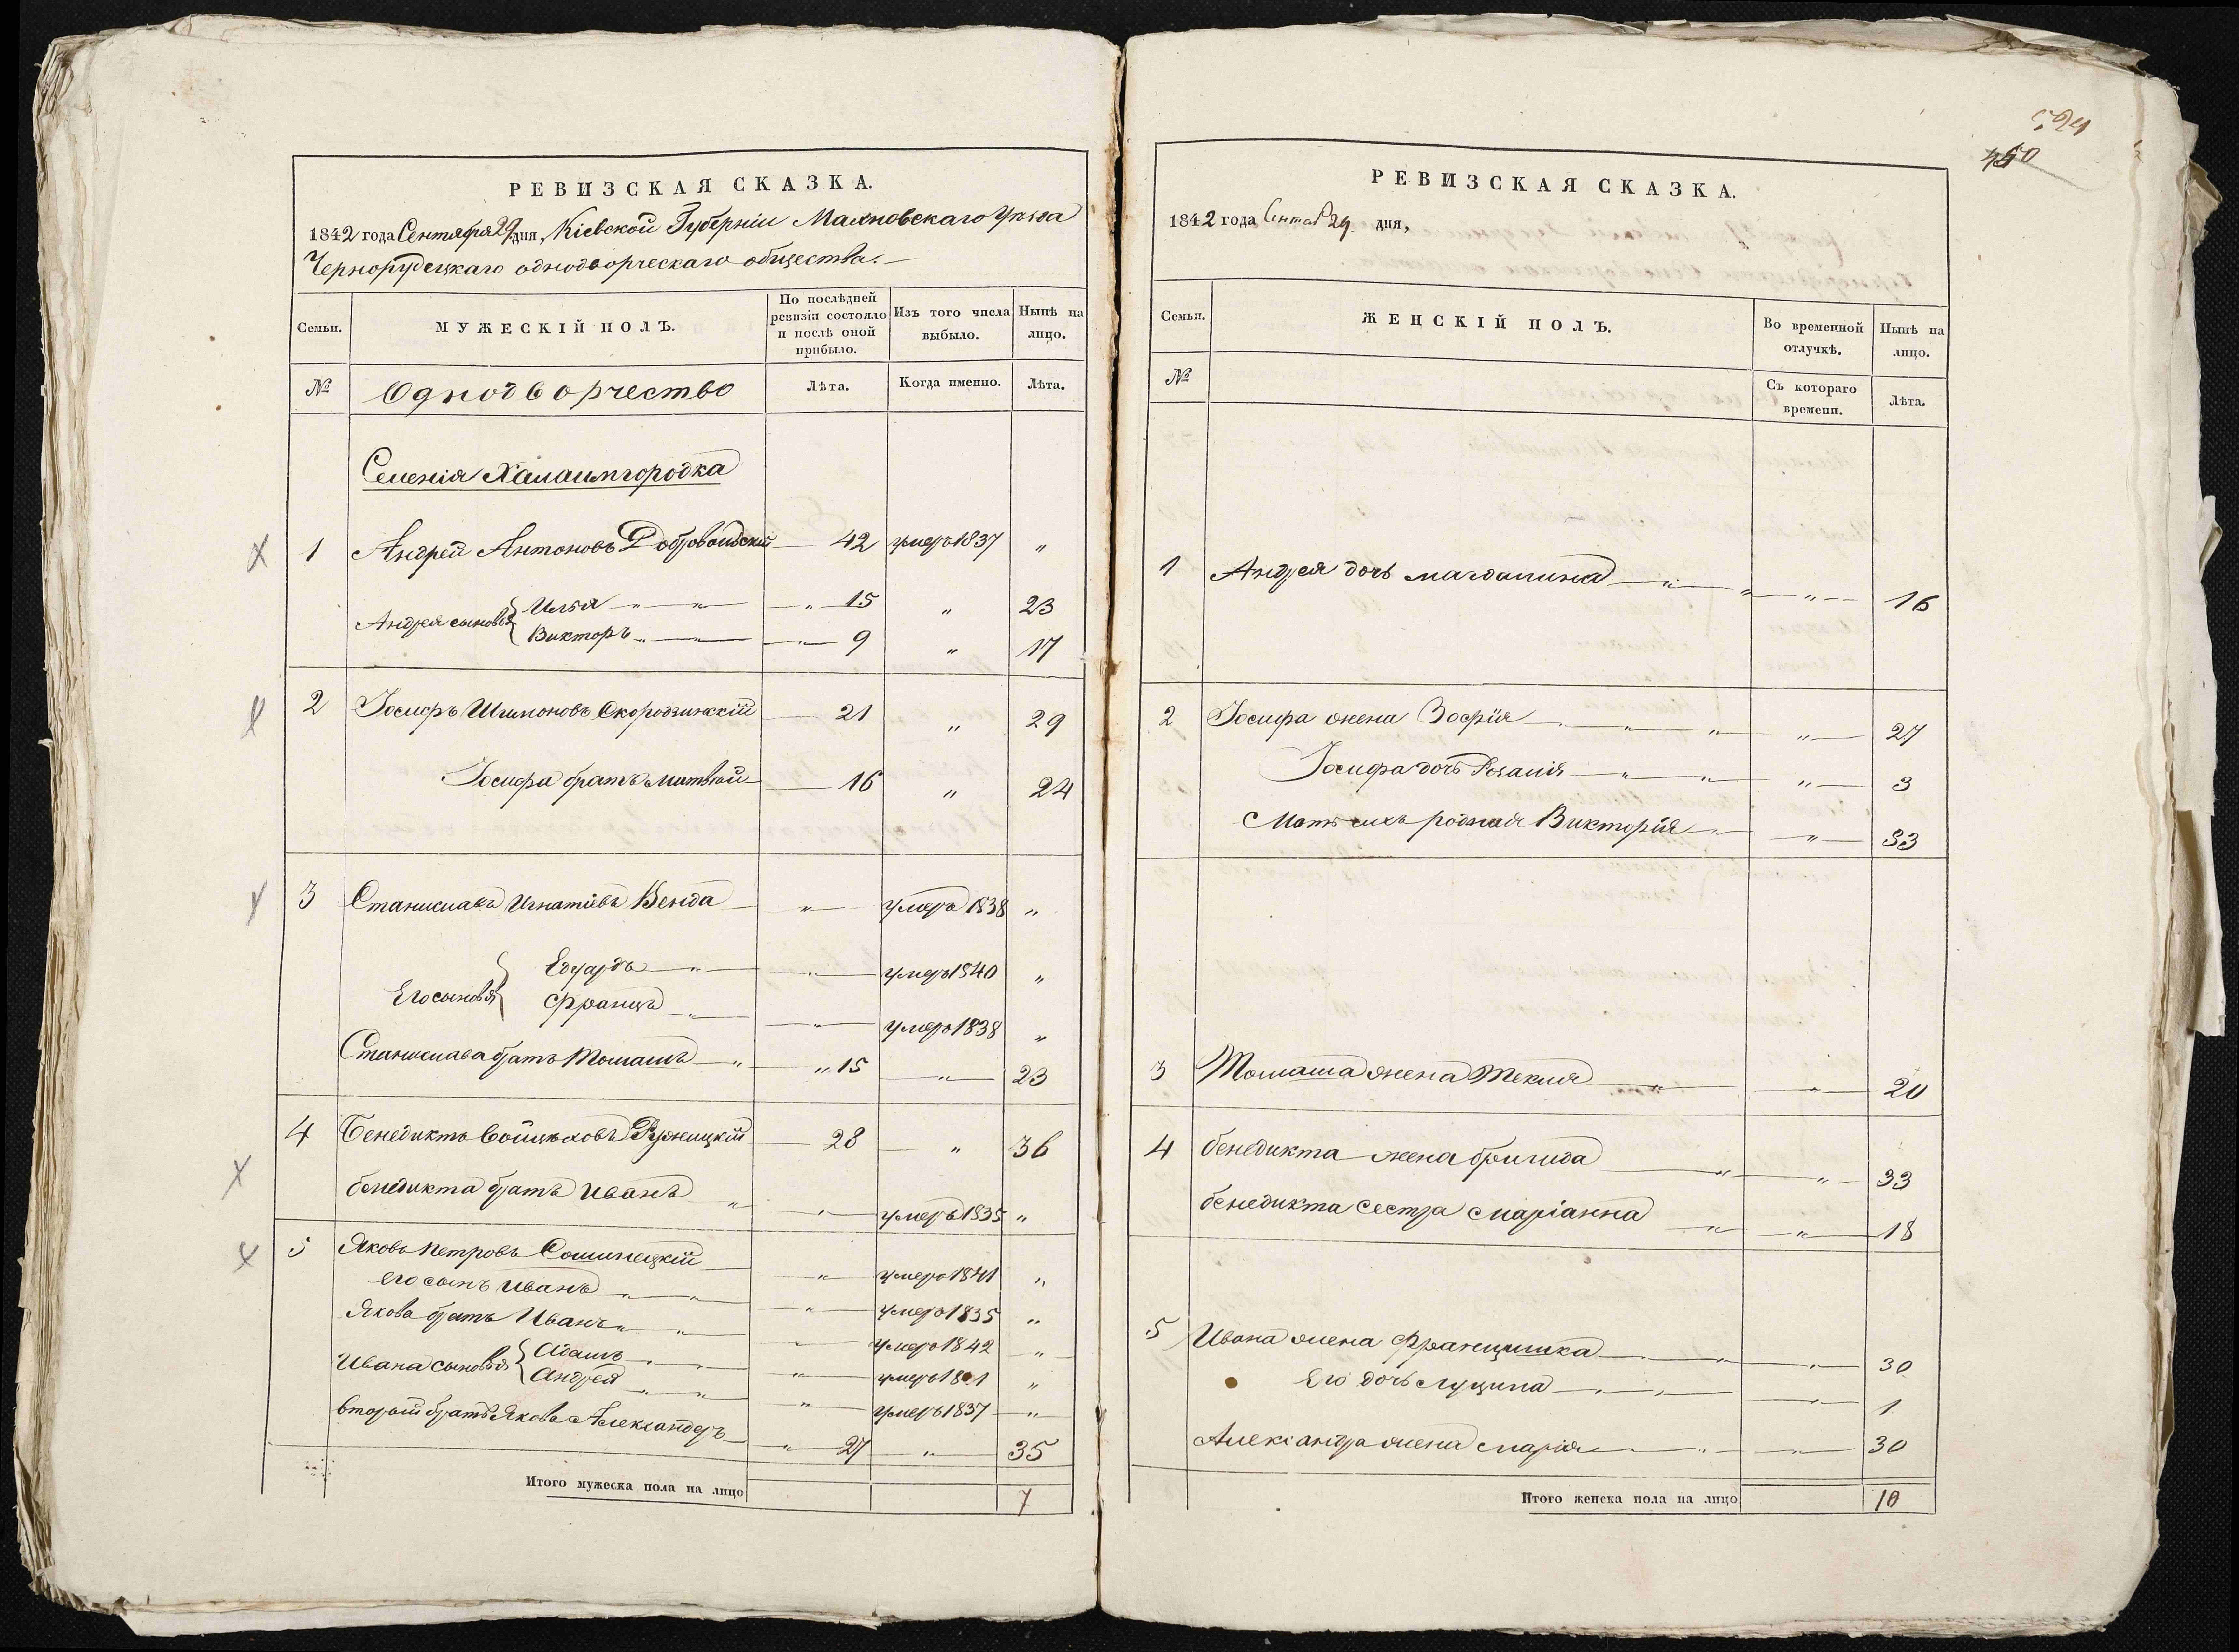 РЕВИЗСКАЯ СКАЗКА.
1842 года Сентября 29 дня, Кіевской Губерніи Махновскаго Уѣзда
Чернорудецкаго однодворческаго общества.
Семьи.
МУЖЕСКІЙ ПОЛЪ.
По послѣдней ревизіи состояло и послѣ оной прибыло.
Изъ того числа выбыло.
Нынѣ на лицо.
№ Однодворчество Лѣта. Когда именно. Лѣта.
Селенія Халаимгородка
1 Андрей Антоновъ 42 умеръ 1837 "
Андрея сыновья { Илья " " " 15 " 23
Викторъ " " " 9 " 17
2 Іосифъ Шимоновъ 21 " 29
Іосифа братъ Матвѣй 16 " 24
3 Станиславъ Игнатіевъ Венда " умеръ 1838 "
Его сыновья { Едуардъ " " умеръ 1840 "
Францъ " " умеръ 1838 "
Станислава братъ Томашъ " " 15 " 23
4 Бенедиктъ Войцѣховъ Ружицкій 28 " 36
бенедикта братъ Иванъ " " умеръ 1835 "
5 Яковъ Петровъ " умеръ 1841 "
его сынъ Иванъ " " " умеръ 1835 "
Якова братъ Иванъ " " " умеръ 1842 "
Ивана сыновья { Адамъ " " " умеръ "
Андрей " " " умеръ 1837 "
второй братъ Якова Александръ " 27 " 35
Итого мужеска пола на лицо 7
524
450
РЕВИЗСКАЯ СКАЗКА.
1842 года Сентяб 29 дня,
Семьи.
ЖЕНСКІЙ ПОЛЪ.
Во временной отлучкѣ.
Нынѣ на лицо.
№ Съ котораго времени. Лѣта.
1 Андрея дочь магдалина " " " 16
2 Іосифа жена Зофія " " " 27
Іосифа дочь " " " 3
Мать ихъ родная Викторія " " 53
3 Томаша жена Текля " " 20
4 бенедикта жена бригида " " 33
бенедикта сестра маріанна " " 18
5 Ивана жена Францишка " " " 30
Его дочь луцина " " " 1
Александра жена марія " " " 30
Итого женска пола на лицо 10